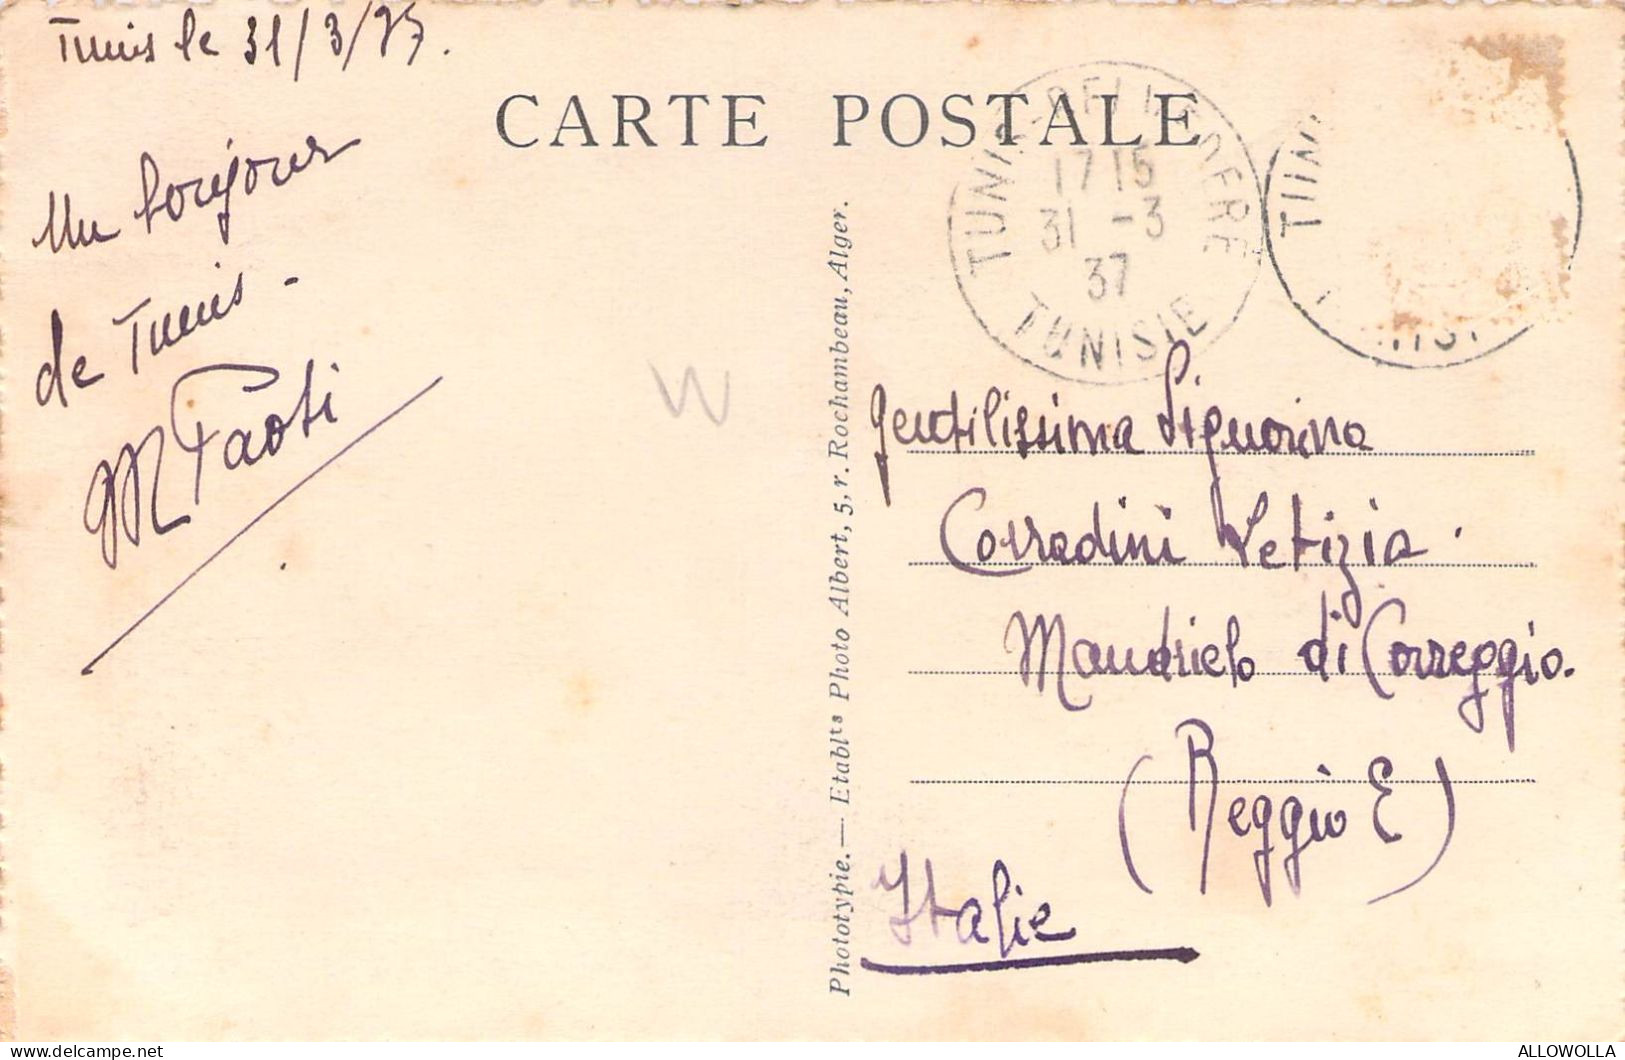 Tunis le 31/3/37.
CARTE POSTALE
TUNIS-BELVEDERE
1715
31 -3
37
TUNISIE
TUN
Un bonjour
de Tunis -
M Paoti
Phototypie. — Etablts Photo Albert, 5, r. Rochambeau, Alger.
Gentilissima Signorina
Corradini Letizia.
Mandriolo di Correggio.
(Reggio E)
Italie
ALLOWOLLA